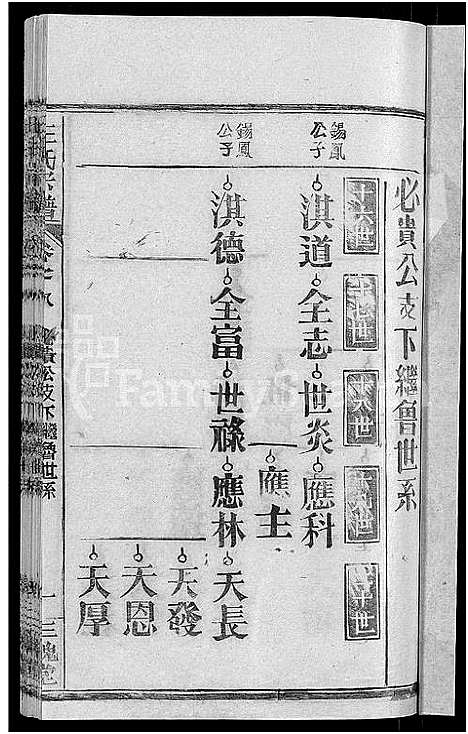 必貴公支下繼魯世系
十六世
十七世
十八世
十九世
二十世
錫鳳公子
淇道 全志 世炎 應科
應主
錫鳳公子
淇德 全富 世祿 應林 天長
天發
天恩
天厚
王氏宗譜
貴公支下繼魯世系